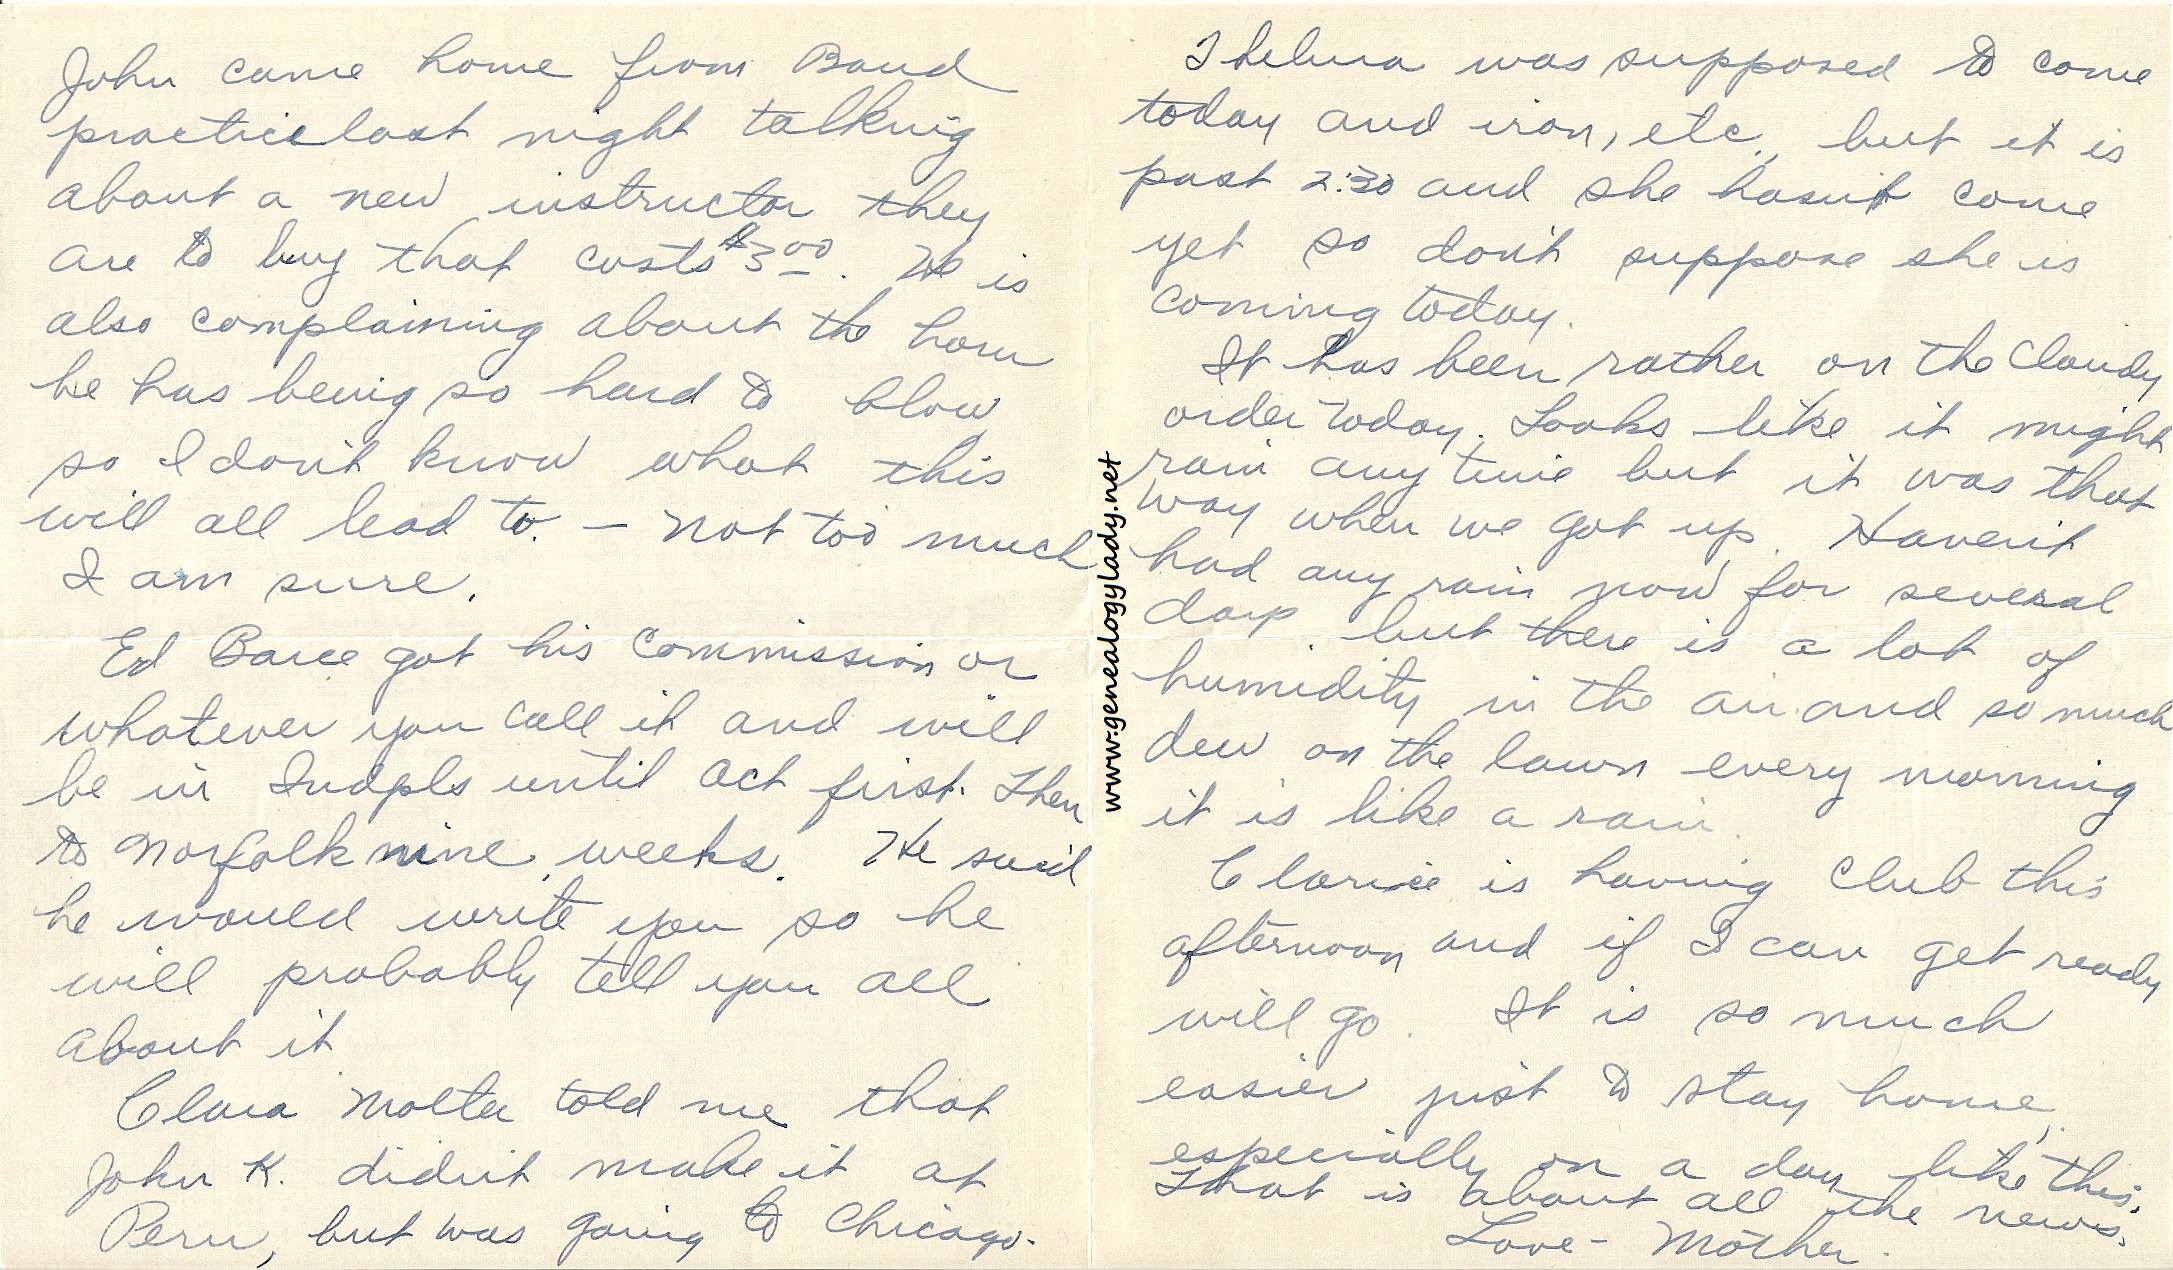 John came home from Band
practice last night talking
about a new instructor they
are to buy that costs $3.00. He is
also complaining about the horn
he has being so hard to blow
so I don't know what this
will all lead to. — Not too much
I am sure.
Ed Barce got his Commission or
whatever you call it and will
be in Indpls until Oct first. Then
to Norfolk nine weeks. He said
he would write you so he
will probably tell you all
about it
Clara Molter told me that
John K. didn't make it at
Peru, but was going to Chicago.
Thelma was supposed to come
today and iron, etc., but it is
past 2:30 and she hasn't come
yet so don't suppose she is
coming today.
It has been rather on the cloudy
order today. Looks like it might
rain any time but it was that
way when we got up. Haven't
had any rain now for several
days but there is a lot of
humidity in the air and so much
dew on the lawn every morning
it is like a rain.
Clarice is having Club this
afternoon and if I can get ready
will go. It is so much
easier just to stay home,
especially on a day like this.
That is about all the news.
Love - Mother.
www.genealogylady.net